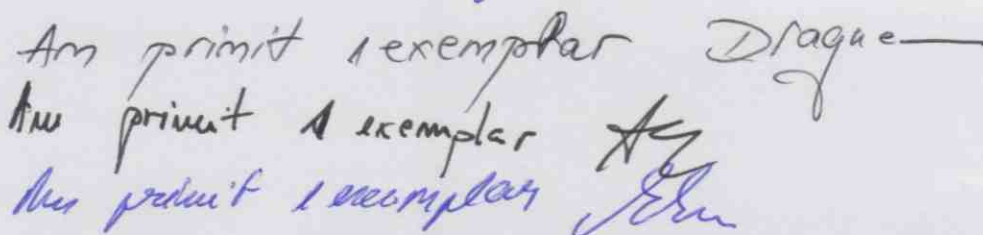 Am primit 1 exemplar Drague
Am primit 1 exemplar
Am primit 1 exemplar